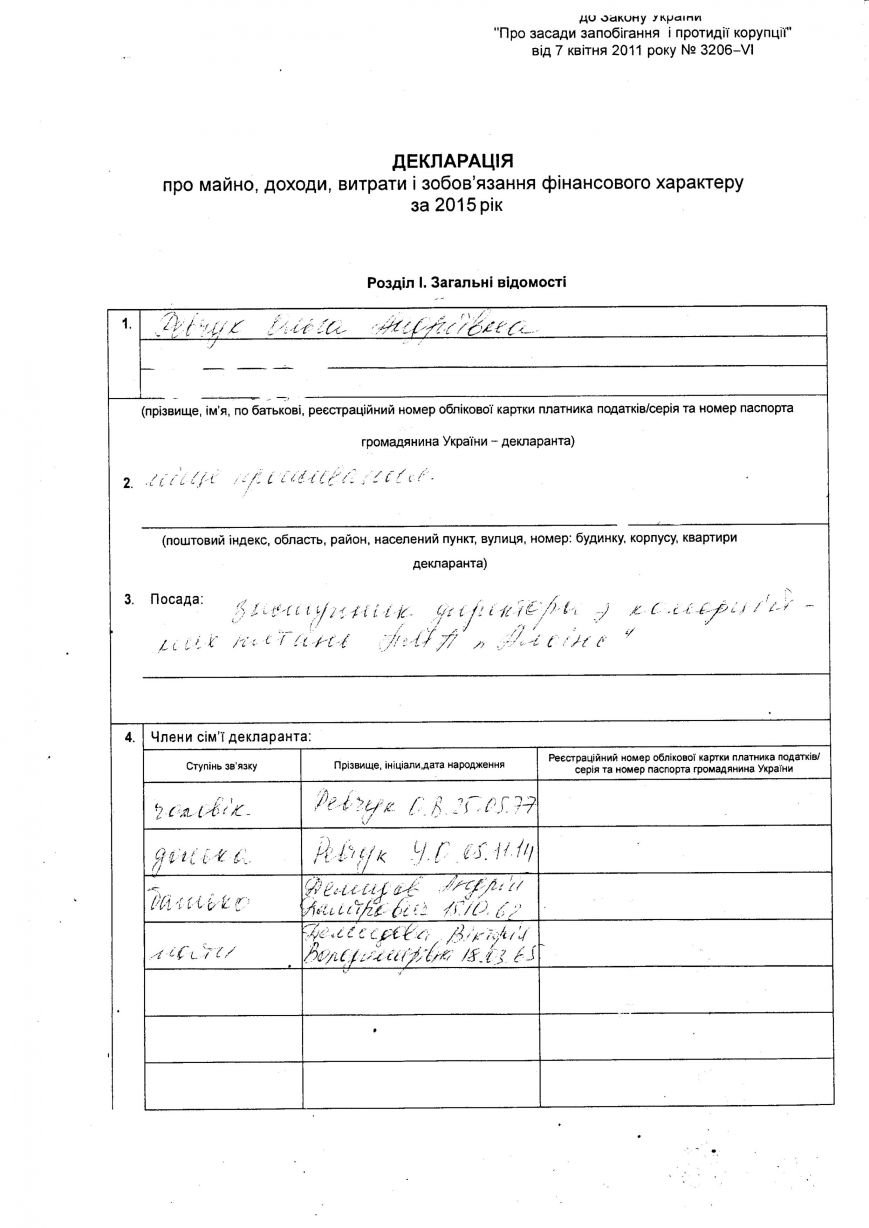 до Закону України
"Про засади запобігання і протидії корупції"
від 7 квітня 2011 року № 3206–VI
ДЕКЛАРАЦІЯ
про майно, доходи, витрати і зобов'язання фінансового характеру
за 2015 рік
Розділ І. Загальні відомості
1. Ревчук Ольга Андріївна
(прізвище, ім'я, по батькові, реєстраційний номер облікової картки платника податків/серія та номер паспорта
громадянина України – декларанта)
2. місце проживання.
(поштовий індекс, область, район, населений пункт, вулиця, номер: будинку, корпусу, квартири
декларанта)
3. Посада: заступник директора з комерцій-
них питань
4. Члени сім'ї декларанта:
Ступінь зв'язку Прізвище, ініціали,дата народження Реєстраційний номер облікової картки платника податків/
серія та номер паспорта громадянина України
чоловік. Ревчук О.В. 25.05.77
донька Ревчук У.О. 05.11.14
батько Демидов Андрій
Дмитрович 15.10.62
мати Демидова Вікторія
Володимирівна 18.03.65